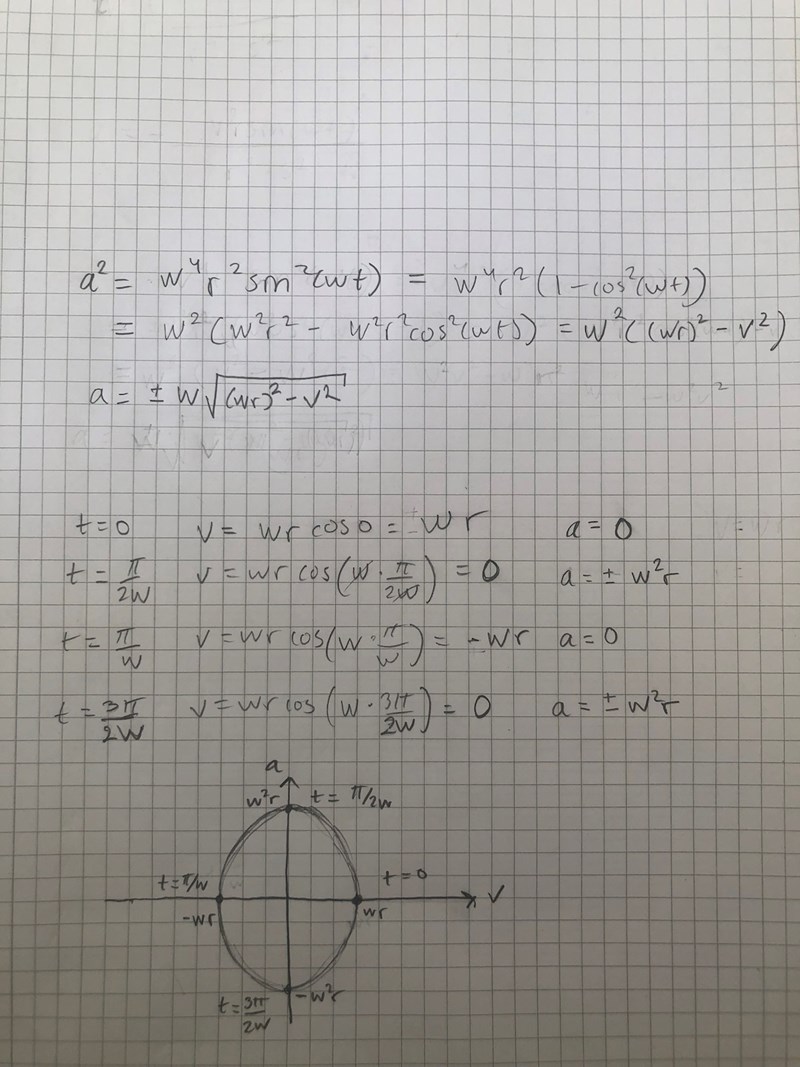 a² = w⁴r²sin²(wt) = w⁴r²(1-cos²(wt))
= w²(w²r² - w²r²cos²(wt)) = w²((wr)² - v²)
a = ± w√((wr)² - v²)
t=0 v = wr cos0 = wr a = 0
t = π/2w v = wr cos(w·π/2w) = 0 a = ± w²r
t = π/w v = wr cos(w·π/w) = -wr a = 0
t = 3π/2w v = wr cos(w·3π/2w) = 0 a = ± w²r
a
w²r t = π/2w
t=π/w t=0
v
-wr wr
t=3π/2w -w²r